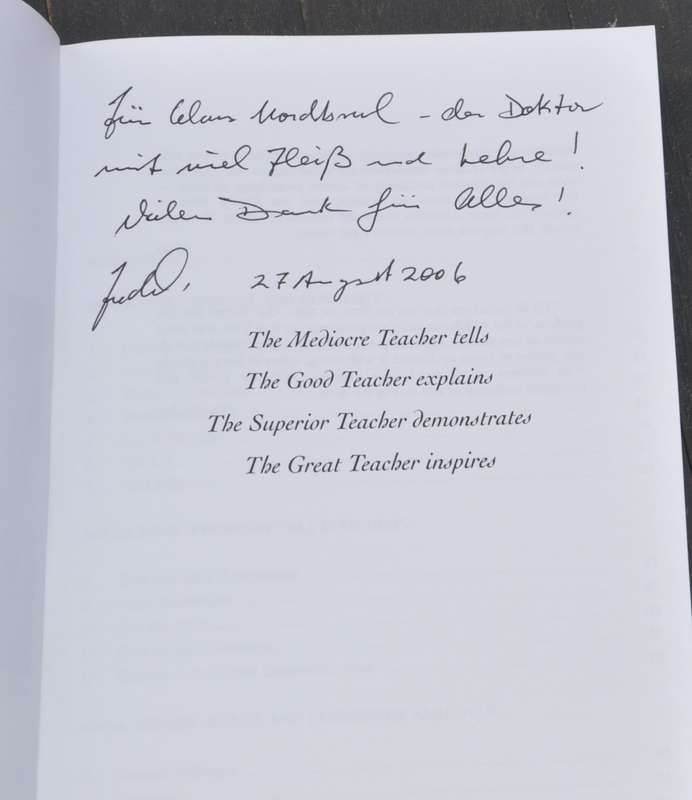 für Claus Nordbruch – der Doktor
mit viel Fleiß und Lehre!
Vielen Dank für Alles!
27 August 2006
The Mediocre Teacher tells
The Good Teacher explains
The Superior Teacher demonstrates
The Great Teacher inspires